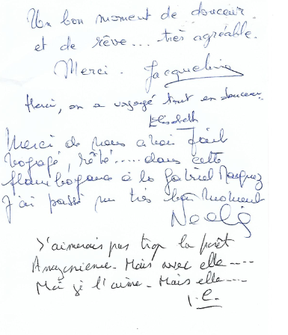 Un bon moment de douceur
et de rêve... très agréable.
Merci. Jacqueline
Merci, on a voyagé tout en douceur.
Elisabeth
Merci, de nous avoir fait
voyagé, rêvé..... dans cette
à la Gabriel
J'ai passé un très bon moment
J'aimerais pas trop la forêt
Amazonienne. Mais avec elle----
Moi je l'aime. Mais elle----